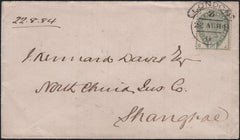 22.8.84
LONDON
J. Kennard Davis Esq
North China Ins. Co.
Shanghae